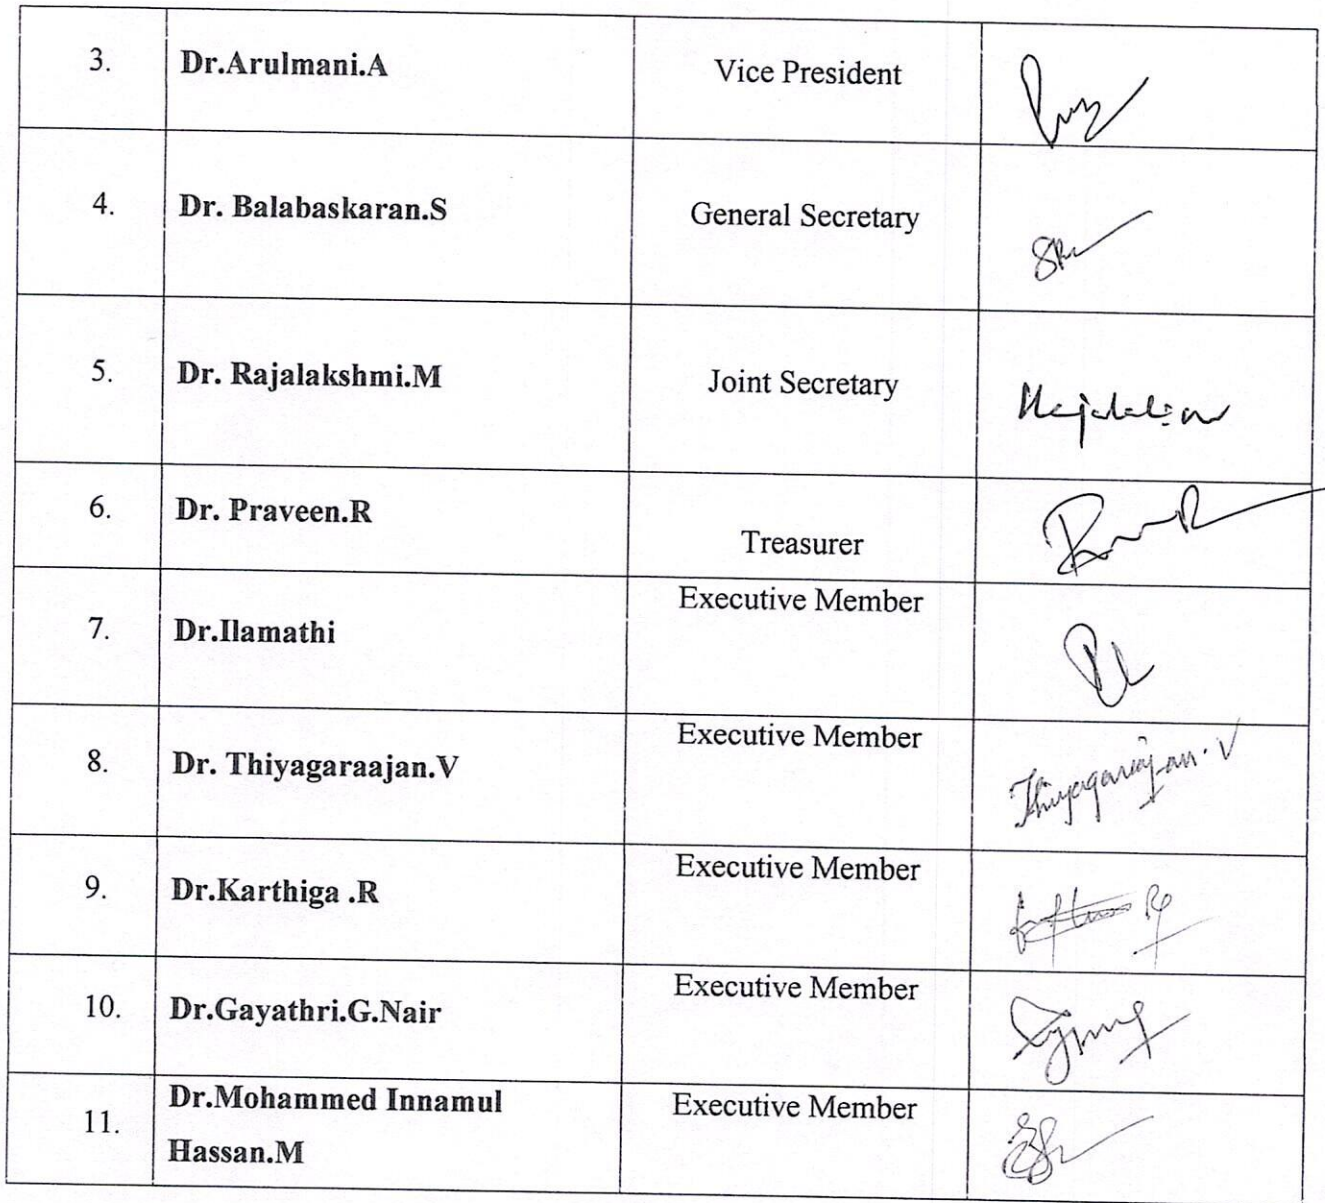 3. Dr.Arulmani.A Vice President
4. Dr. Balabaskaran.S General Secretary
5. Dr. Rajalakshmi.M Joint Secretary
6. Dr. Praveen.R Treasurer
7. Dr.Ilamathi Executive Member
8. Dr. Thiyagaraajan.V Executive Member Thiyagaraajan.V
9. Dr.Karthiga .R Executive Member
10. Dr.Gayathri.G.Nair Executive Member
11. Dr.Mohammed Innamul Executive Member
Hassan.M